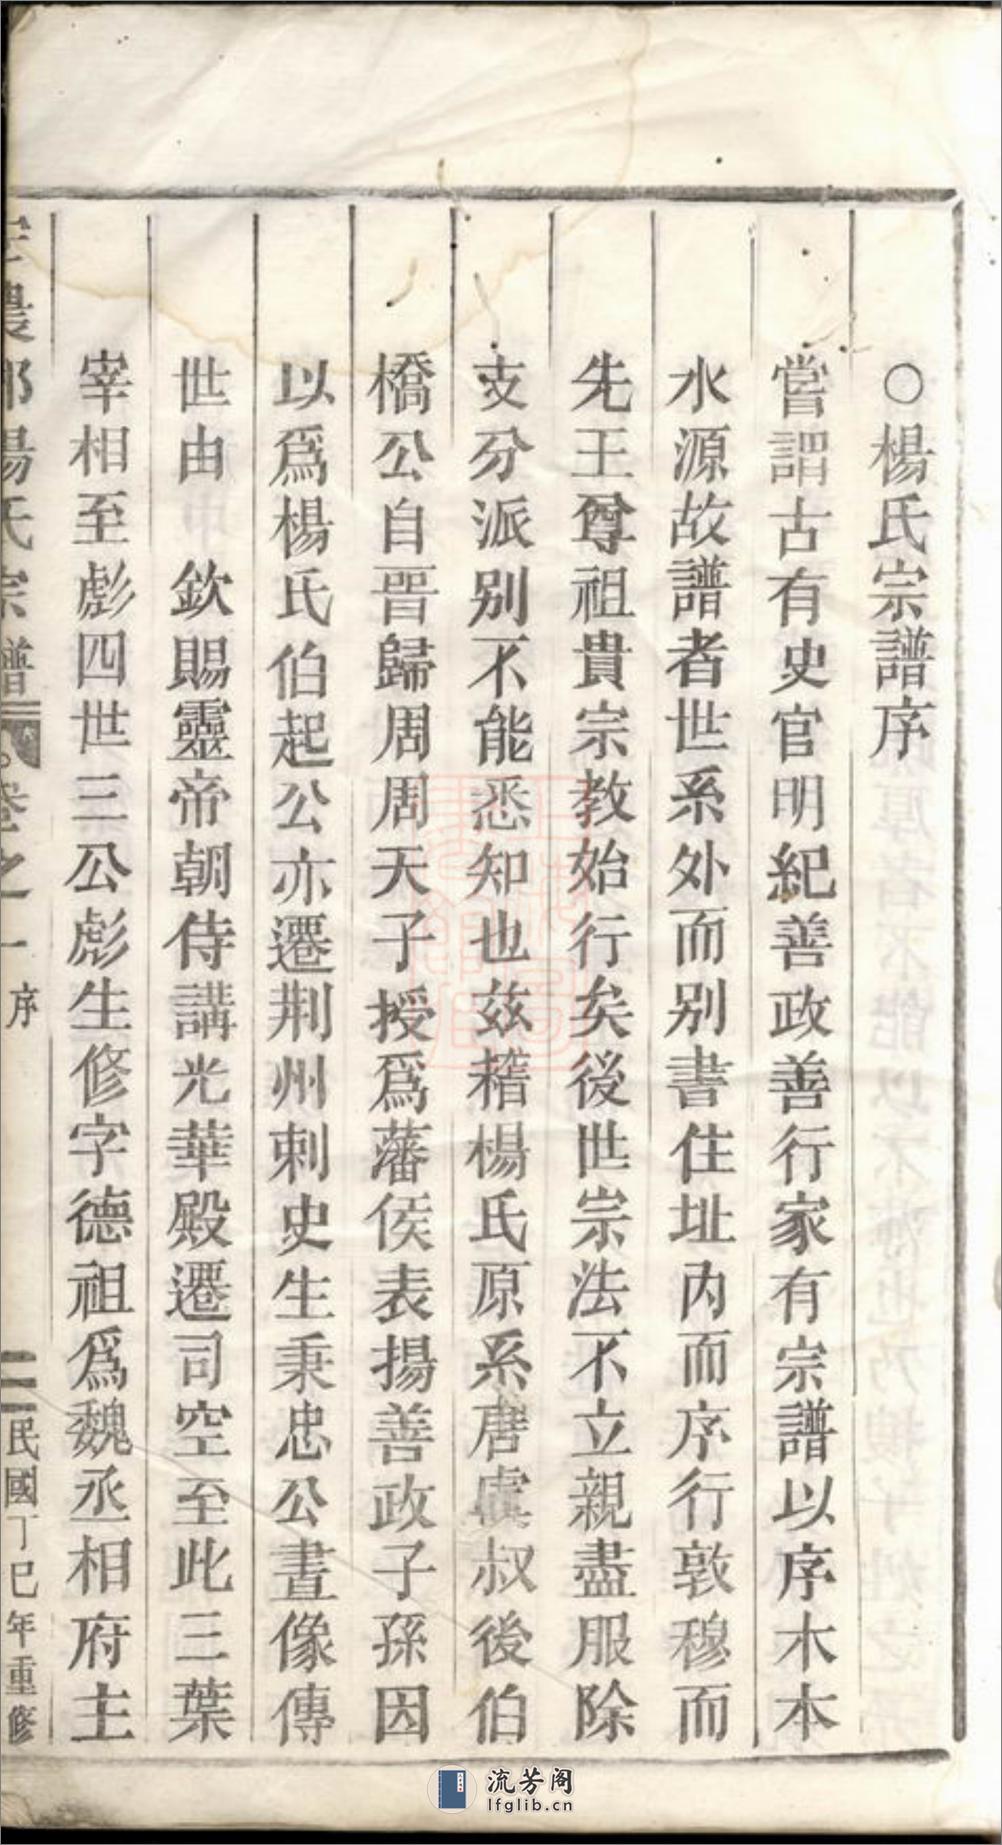 ○楊氏宗譜序
嘗謂古有史官明紀善政善行家有宗譜以序木本
水源故譜者世系外而别書住址內而序行敦穆而
先王尊祖貴宗教始行矣後世宗法不立親盡服除
支分派别不能悉知也茲稽楊氏原系唐虞叔後伯
橋公自晋歸周周天子授爲藩侯表揚善政子孫因
以爲楊氏伯起公亦遷荆州刺史生秉忠公晝像傳
世由 欽賜靈帝朝侍講光華殿遷司空至此三葉
宰相至彪四世三公彪生修字德祖爲魏丞相府主
農郡楊氏宗譜 卷之一 序 民國丁巳年重修
流芳阁
lfglib.cn